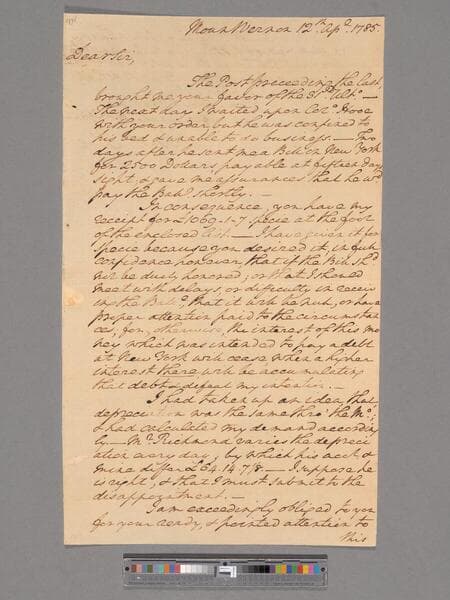 Mount Vernon 12th. Apl. 1785.
Dear Sir,
The Post preceeding the last,
brought me your favor of the 31st Ulto. —
The next day I waited upon Colo. Hooe
with your order, but he was confined to
his bed & unable to do business. — Two
days after he sent me a Bill on New York
for 2500 Dollars payable at fifteen days
sight, & gave me assurances that he wd.
pay the Balle. shortly. —
In consequence, you have my
receipt for £1069-1-7 specie at the foot
of the enclosed list. — I have given it for
Specie because you desired it; in full
confidence however, that if the Bill shd.
not be duely honored; or that I should
meet with delays, or difficulty in receivg
in the Balle. that it will be null, or have
proper attention paid to the circumstan
ces, for, otherwise, the interest of this mo
ney which was intended to pay a debt
at New York will cease when a higher
interest there will be accumulating
that debt & defeat my intention. —
I had taken up an idea, that
depreciation was the same thro' the Mo.;
& had calculated my demand according
ly. — Mr. Richmond varies the depreci
ation every day; by which his acct. &
mine differ £64.14.7/8. — I suppose he
is right, & that I must submit to the
disappointment. —
I am exceedingly obliged to you
for your ready, & pointed attention to
this